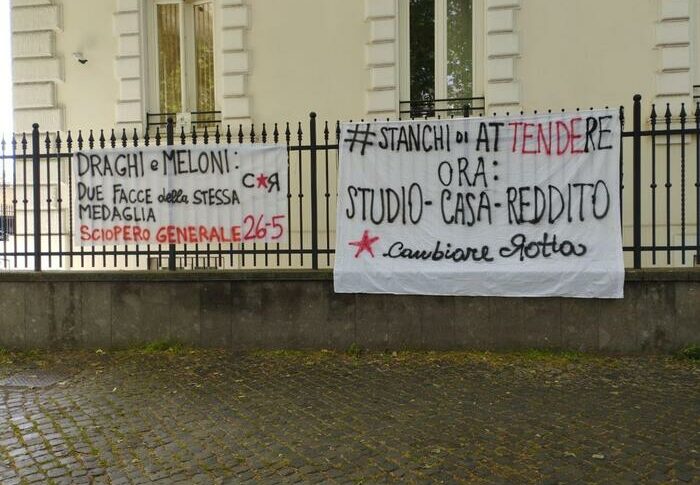 DRAGHI e MELONI:
DUE FACCE della STESSA
MEDAGLIA
SCIOPERO GENERALE 26-5
C★R
#STANCHI DI ATTENDERE
ORA:
STUDIO-CASA-REDDITO
★ Cambiare Rotta